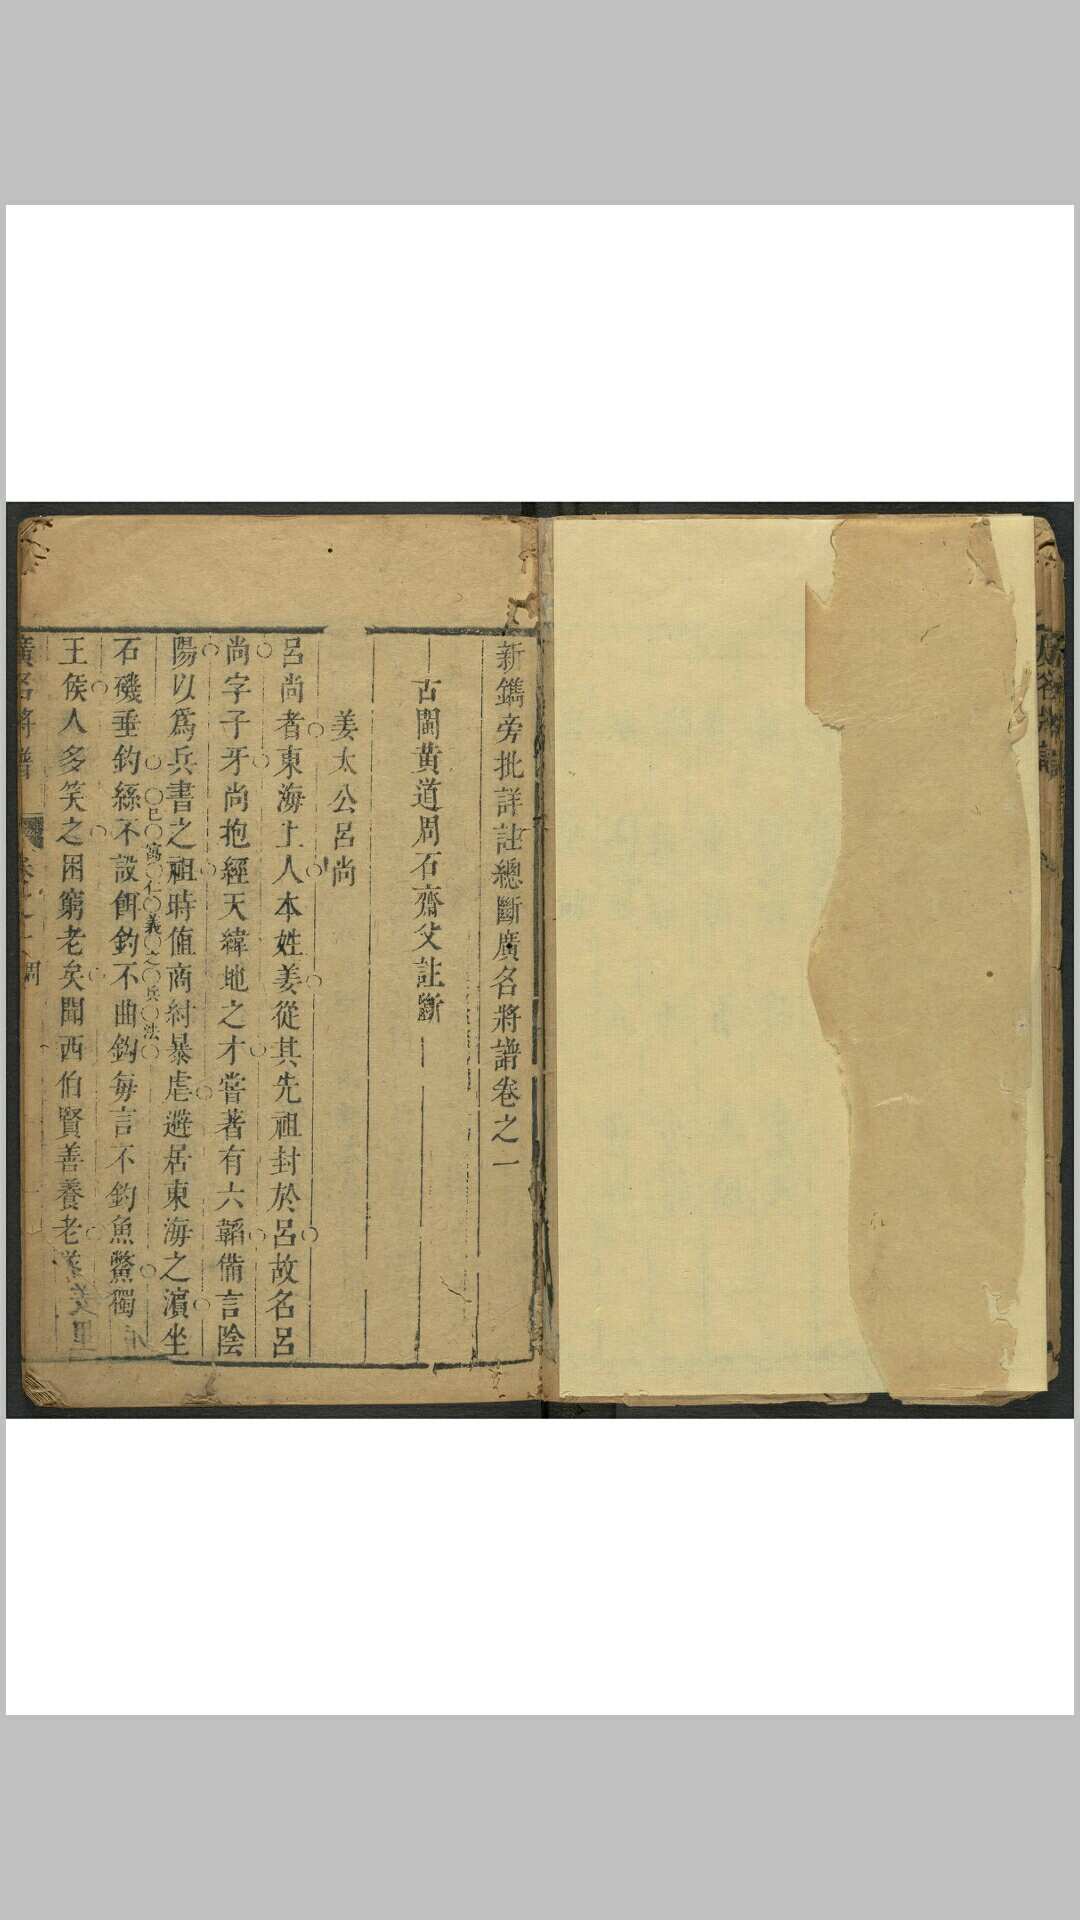 新鐫旁批詳註總斷廣名將譜卷之一
古閩黃道周石齋父註斷
姜太公呂尚
呂尚者東海上人本姓姜從其先祖封於呂故名呂
尚字子牙尚抱經天緯地之才嘗著有六韜備言陰
陽以爲兵書之祖時值商紂暴虐避居東海之濵坐
已寓仁義之兵法
石磯垂釣絲不設餌釣不曲鈎每言不釣魚鱉獨
王侯人多笑之困窮老矣聞西伯賢善養老
廣名將譜 卷之一 周